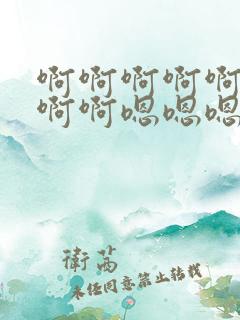 啊啊啊啊啊
啊啊嗯嗯嗯
衛莴
未经同意禁止转载